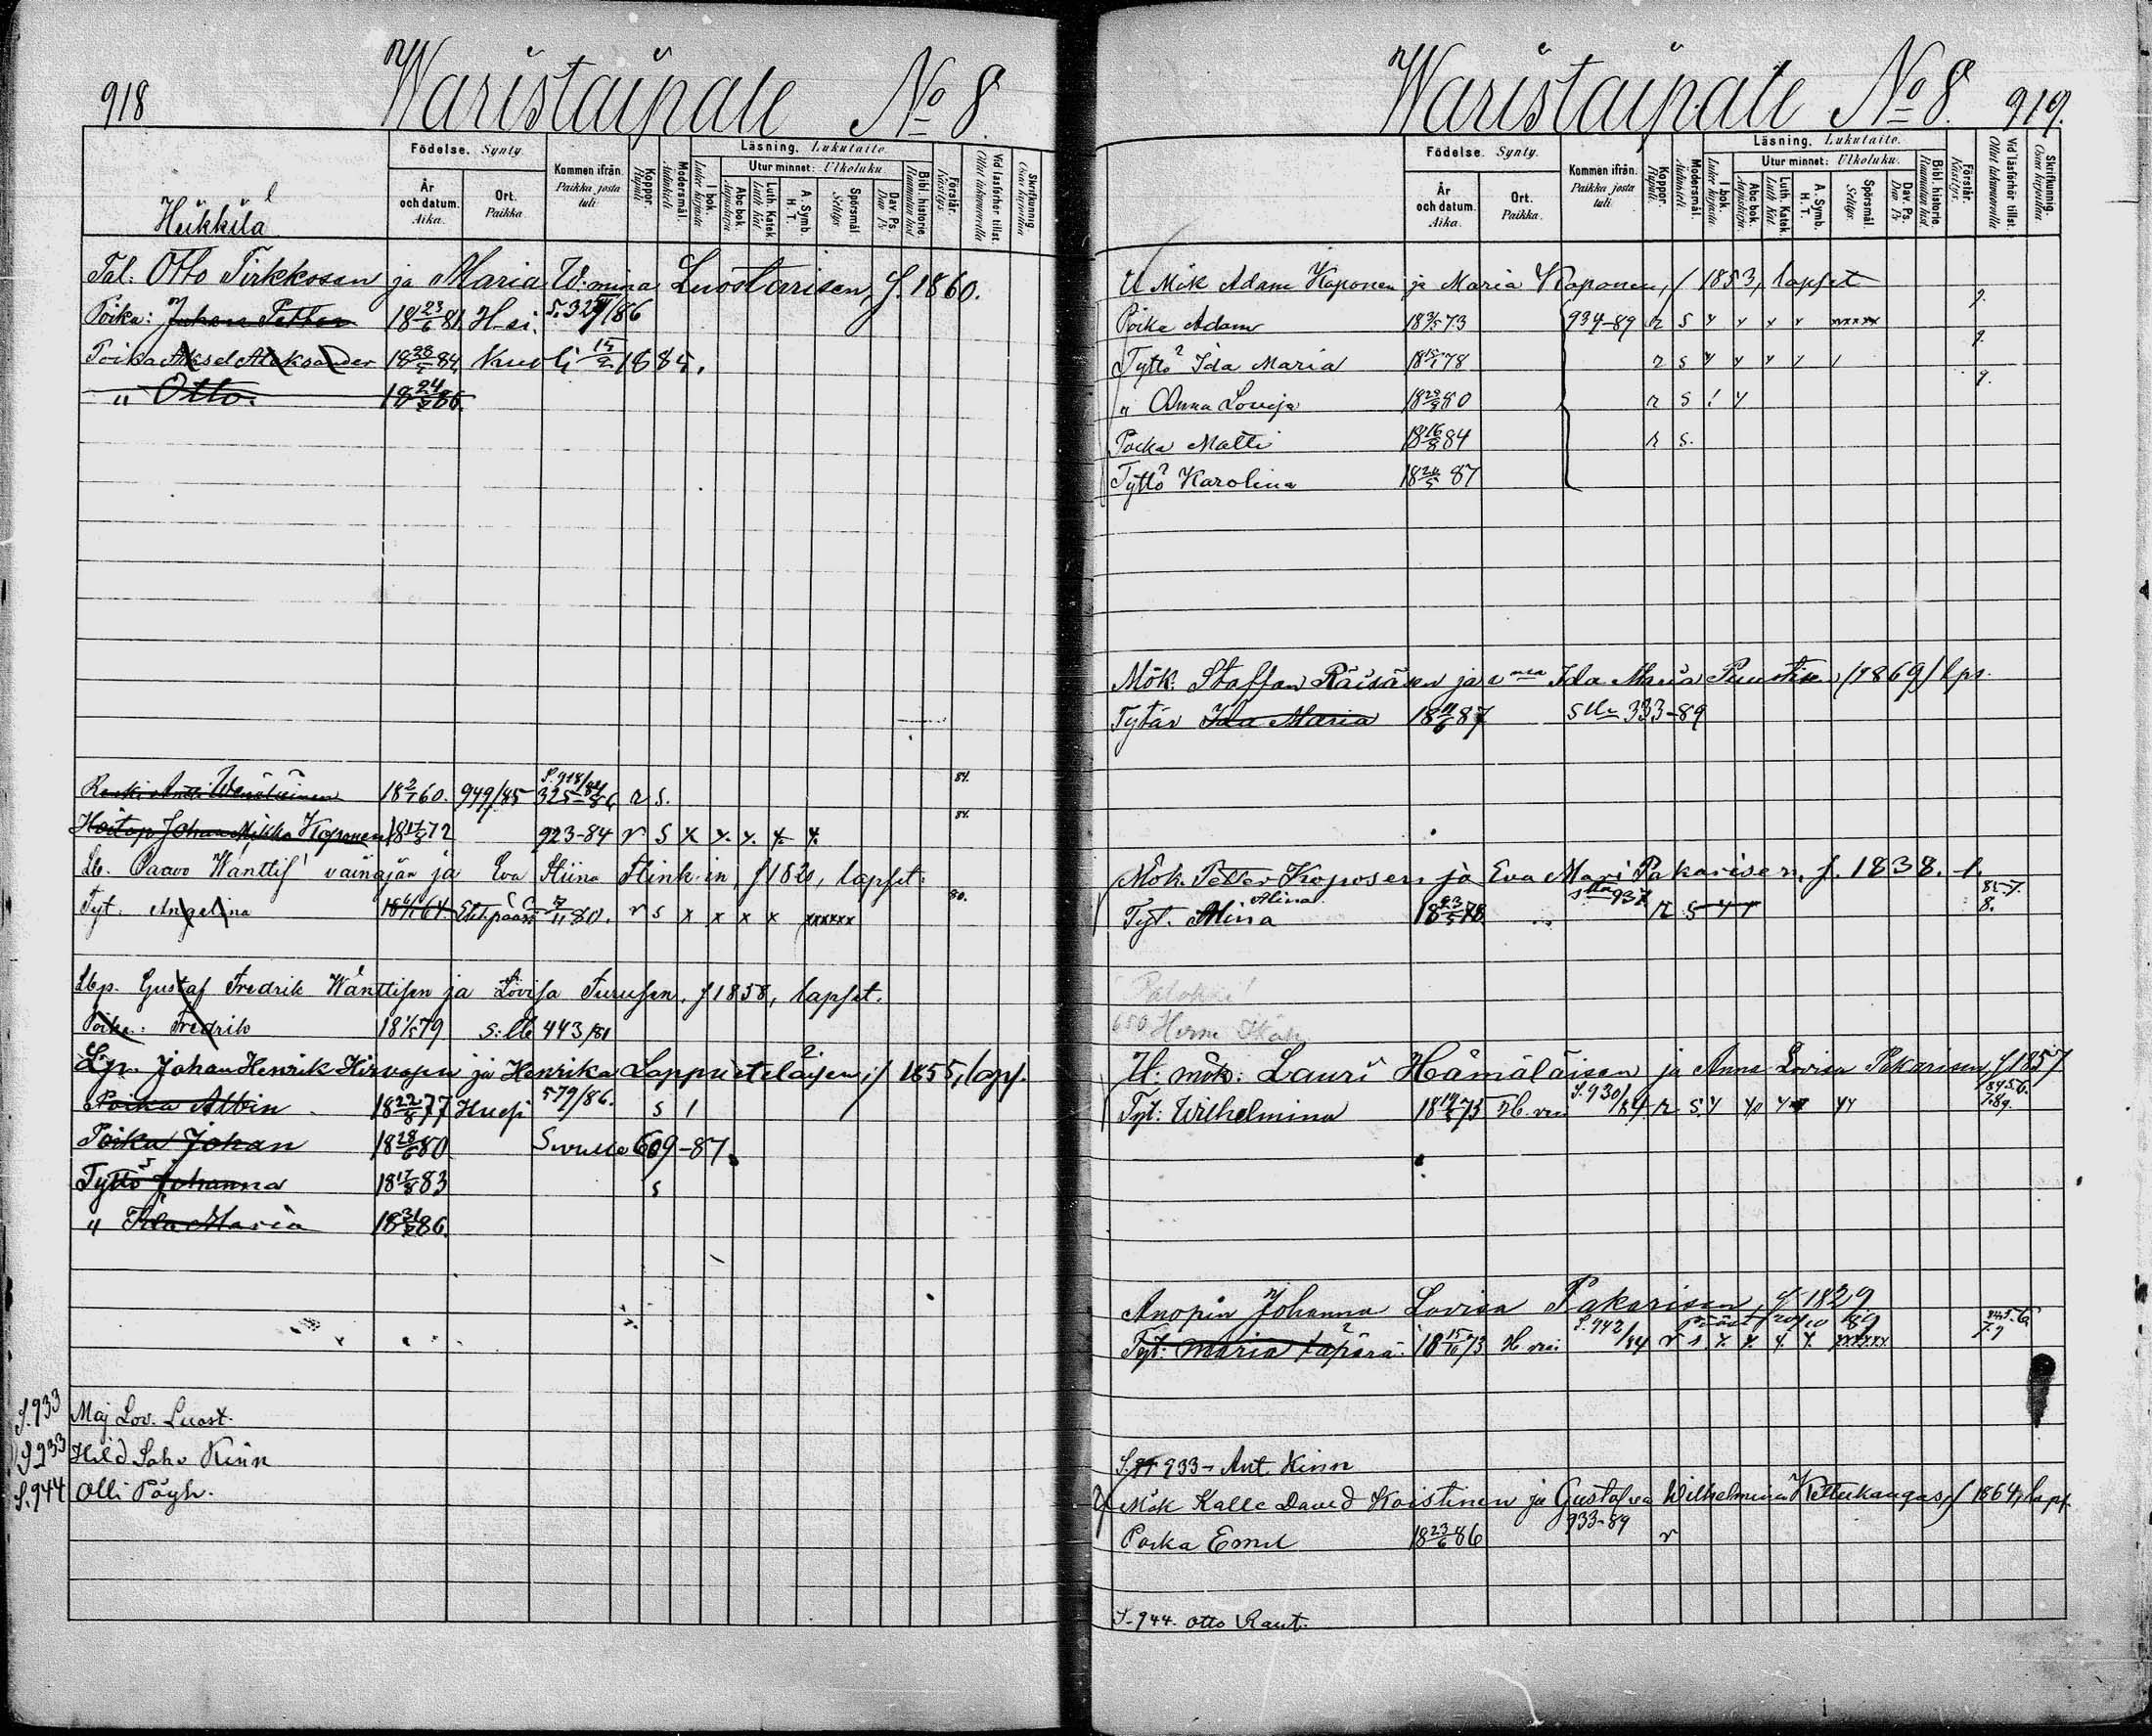 918
Waristaipale No 8.
Födelse. Synty.
År och datum. Aika.
Ort. Paikka.
Kommen ifrån. Paikka josta tuli
Koppor. Rupuli.
Modersmål. Äidinkieli.
Läsning. Lukutaito.
I bok. Lukee kirjasta
Utur minnet: Ulkoluku
Abc bok. Aapiskirja.
Luth. Katek. Luth. Kat.
A. Symb. H. T.
Spörsmål. Selitys
Dav. Ps. Dav. Ps
Bibl. historie. Raamatun hist.
Förstår. Käsitys.
Vid läsförhör tillst. Ollut lukuvuorolla
Skrifkunnig. Osaa kirjoittaa
Heikkilä
Tal: Otto Tirkkosen ja Maria W:mina Luostarisen, f. 1860.
Poika: Juhana Petter 18 23/6 81. H-si. S. 327/86
Poika Aksel Aleksander 18 28/5 84 Kuoli 15/2 1885.
" Otto. 18 24/2 86.
Renki Antti Wenäläinen 18 2/1 60. 949/85 S. 918/84 325-86 r s. 84.
Hoitop. Johan Mikko Koponen 18 17/8 72 923-84 r s x x. x. x. x. 84.
Lli. Paavo Wänttis' vainajan ja Eva Stiina Stink-in, f 1820, lapset:
Tyt. Angelina 18 6/1 64 r s x x x x xxxxxx 80.
Lbp. Gustaf Fredrik Wänttisen ja Lovisa Turusen. f 1858, lapset.
Poika: Fredrik 18 1/5 79 S:lle 443/81
Lp. Johan Henrik Hirvosen ja Henrika Lappeteläisen; f 1855, laps.
Poika Albin 18 22/8 77 579/86. s /
Poika Johan 18 28/6 80 Sivulle 609-87.
Tyttö Johanna 18 17/8 83 s
" Ida Maria 18 31/3 86.
S. 933 Maj Lov. Luost.
S 933 Hild Sohv Kinn
S. 944 Olli Pöyh.
Waristaipale No 8. 919.
Födelse. Synty.
År och datum. Aika.
Ort. Paikka.
Kommen ifrån. Paikka josta tuli
Koppor. Rupuli.
Modersmål. Äidinkieli.
Läsning. Lukutaito.
I bok. Lukee kirjasta
Utur minnet: Ulkoluku.
Abc bok. Aapiskirja.
Luth. Katek. Luth. Kat.
A. Symb. H. T.
Spörsmål. Selitys
Dav. Ps. Dav. Ps
Bibl. historie. Raamatun hist.
Förstår. Käsitys.
Vid läsförhör tillst. Ollut lukuvuorolla
Skrifkunnig. Osaa kirjoittaa
U Mök Adam Koponen ja Maria Koponen, f 1853, lapset
Poika Adam 18 3/5 73 934-89 r s x x x x xxxxx 9.
Tyttö Ida Maria 18 15/1 78 r s x x x / / 9.
" Anna Loviisa 18 29/9 80 r s / x 9.
Poika Matti 18 16/8 84 r s.
Tyttö Karolina 18 24/5 87
Mök. Staffan Räisäsen ja Ida Maria Puustin. (1869) lps.
Tytär Ida Maria 18 11/6 87 Slle 333-89
Mök. Petter Koposen ja Eva Mari Pakarisen. f. 1838. l.
Alina slta 937 85-7.
Tyt. Alina 18 23/5 78 r s x x 8.
Palokki
650
U: mök: Lauri Hämäläisen ja Anna Lovisa Pakarisen, f 1857
Tyt: Wilhelmina 18 19/5 75 S. 930/84 r s. x 84.5.6. 7.89.
Anopin Johanna Lovisa Pakarisen, f 1829
Tyt: Maria 18 15/6 73 S. 942/84 r s x. x. x. x. xxxxxx 84.5.6. 7.9
S. 933 - Ant. Kinn
Mök Kalle David Koistinen ja Gustafva Wilhelmiina Kettukangas, f 1864, laps.
Poika Emil 18 23/6 86 933-89 r
S. 944. Otto Raut.